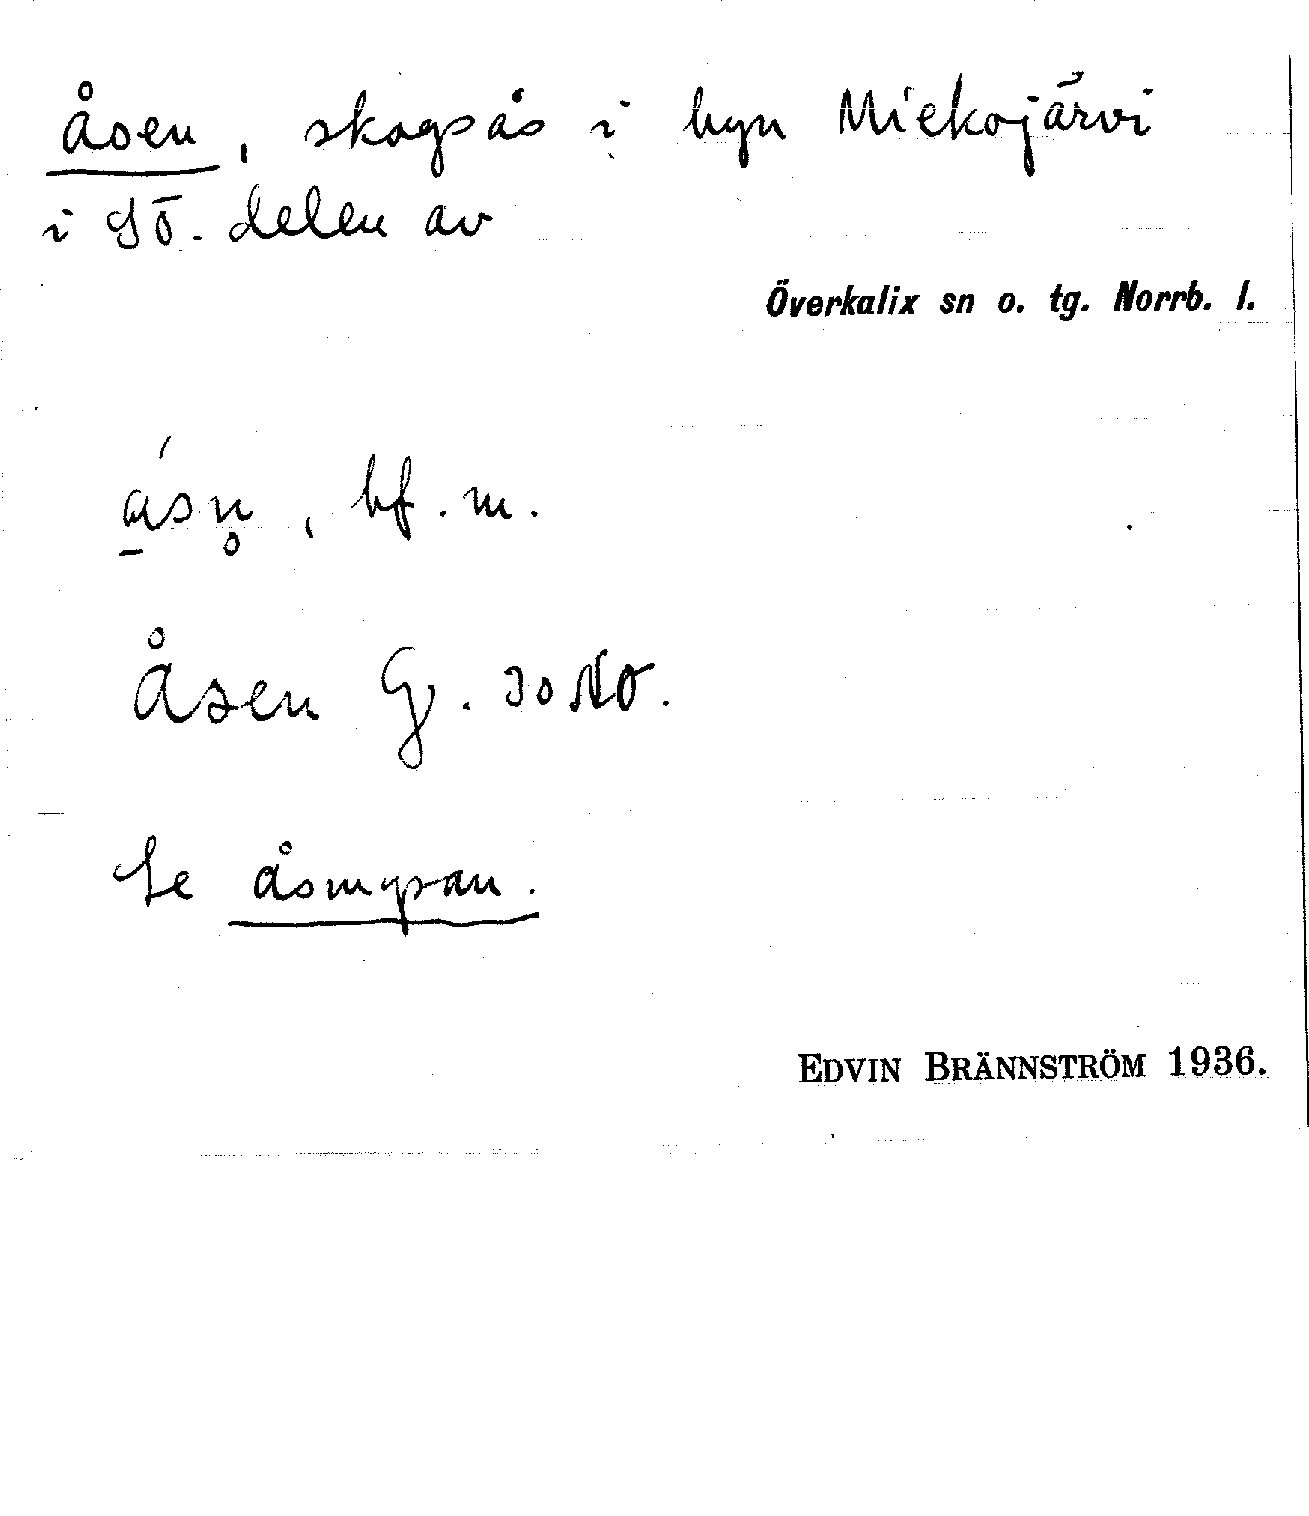 Åsen, skogsås i byn Miekojärvi
i SÖ. delen av
Överkalix sn o. tg. Norrb. l.
ásn̥, bf. m.
Åsen G. 30 NO.
Se åsmyran.
EDVIN BRÄNNSTRÖM 1936.